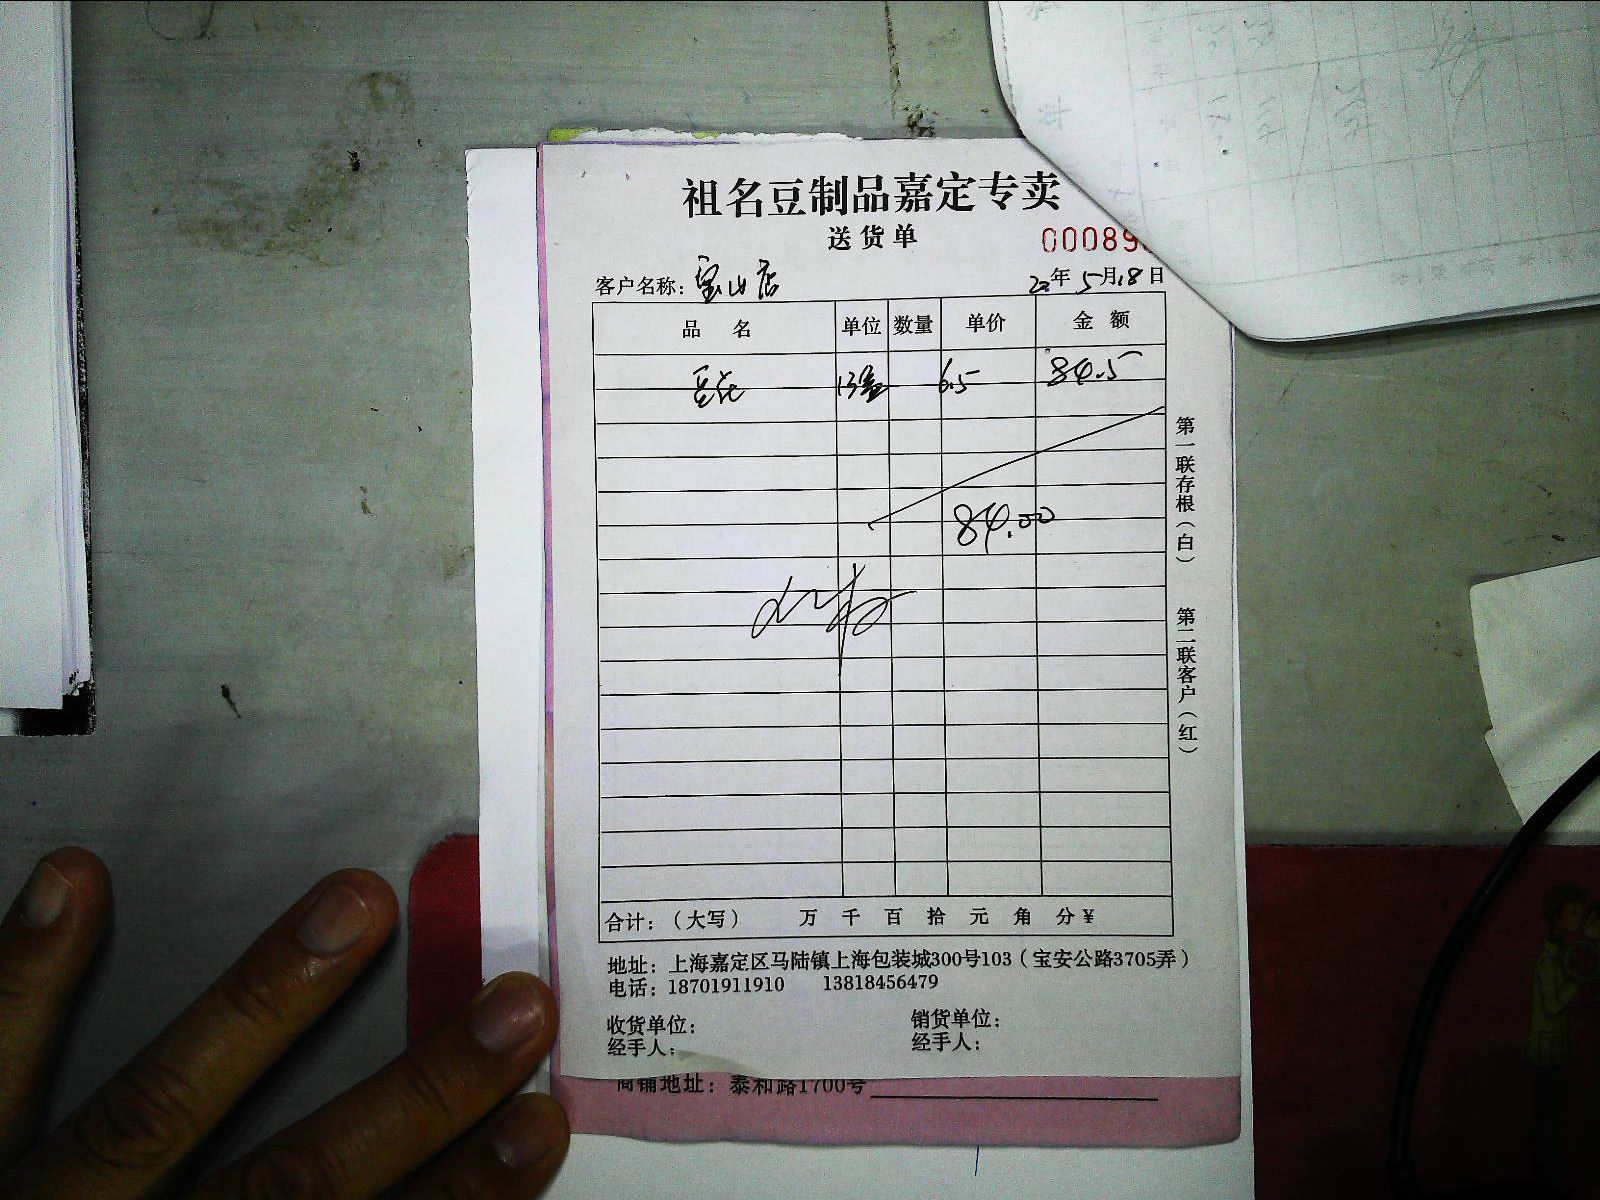 祖名豆制品嘉定专卖
送货单
00089
客户名称：宝山店 22年5月18日
品名 单位 数量 单价 金额
豆花 13盒 6.5 84.5
84.00
合计：（大写） 万 千 百 拾 元 角 分 ¥
地址：上海嘉定区马陆镇上海包装城300号103（宝安公路3705弄）
电话：18701911910 13818456479
收货单位： 销货单位：
经手人： 经手人：
商铺地址：泰和路1700号
第一联存根（白）
第二联客户（红）